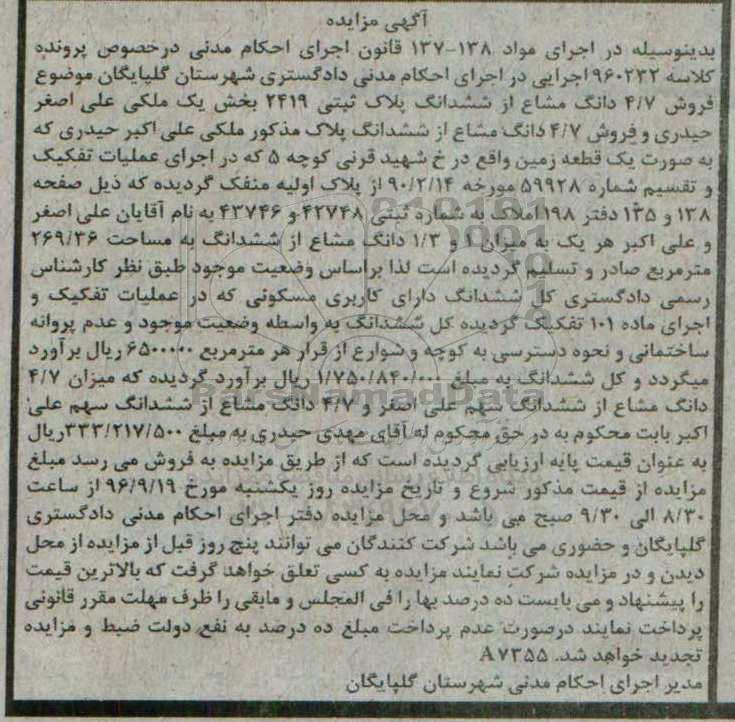 آگهی مزایده
بدینوسیله در اجرای مواد ۱۳۸-۱۳۷ قانون اجرای احکام مدنی درخصوص پرونده
کلاسه ۹۶۰۲۳۲ اجرایی در اجرای احکام مدنی دادگستری شهرستان گلپایگان موضوع
فروش ۴/۷ دانگ مشاع از ششدانگ پلاک ثبتی ۲۴۱۹ بخش یک ملکی علی اصغر
حیدری و فروش ۴/۷ دانگ مشاع از ششدانگ پلاک مذکور ملکی علی اکبر حیدری که
به صورت یک قطعه زمین واقع در خ شهید قرنی کوچه ۵ که در اجرای عملیات تفکیک
و تقسیم شماره ۵۹۹۲۸ مورخه ۹۰/۲/۱۴ از پلاک اولیه منفک گردیده که ذیل صفحه
۱۳۸ و ۱۳۵ دفتر ۱۹۸ املاک به شماره ثبتی ۴۲۷۴۸ و ۴۳۷۴۶ به نام آقایان علی اصغر
و علی اکبر هر یک به میزان ۱ و ۱/۳ دانگ مشاع از ششدانگ به مساحت ۲۶۹/۳۶
مترمربع صادر و تسلیم گردیده است لذا براساس وضعیت موجود طبق نظر کارشناس
رسمی دادگستری کل ششدانگ دارای کاربری مسکونی که در عملیات تفکیک و
اجرای ماده ۱۰۱ تفکیک گردیده کل ششدانگ به واسطه وضعیت موجود و عدم پروانه
ساختمانی و نحوه دسترسی به کوچه و شوارع از قرار هر مترمربع ۶۵۰۰۰۰۰ ریال برآورد
میگردد و کل ششدانگ به مبلغ ۱/۷۵۰/۸۴۰/۰۰۰ ریال برآورد گردیده که میزان ۴/۷
دانگ مشاع از ششدانگ سهم علی اصغر و ۴/۷ دانگ مشاع از ششدانگ سهم علی
اکبر بابت محکوم به در حق محکوم له آقای مهدی حیدری به مبلغ ۳۳۳/۲۱۷/۵۰۰ ریال
به عنوان قیمت پایه ارزیابی گردیده است که از طریق مزایده به فروش می رسد مبلغ
مزایده از قیمت مذکور شروع و تاریخ مزایده روز یکشنبه مورخ ۹۶/۹/۱۹ از ساعت
۸/۳۰ الی ۹/۳۰ صبح می باشد و محل مزایده دفتر اجرای احکام مدنی دادگستری
گلپایگان و حضوری می باشد شرکت کنندگان می توانند پنج روز قبل از مزایده از محل
دیدن و در مزایده شرکت نمایند مزایده به کسی تعلق خواهد گرفت که بالاترین قیمت
را پیشنهاد و می بایست ده درصد بها را فی المجلس و مابقی را ظرف مهلت مقرر قانونی
پرداخت نمایند درصورت عدم پرداخت مبلغ ده درصد به نفع دولت ضبط و مزایده
تجدید خواهد شد. A۷۳۵۵
مدیر اجرای احکام مدنی شهرستان گلپایگان
ParsNamadData